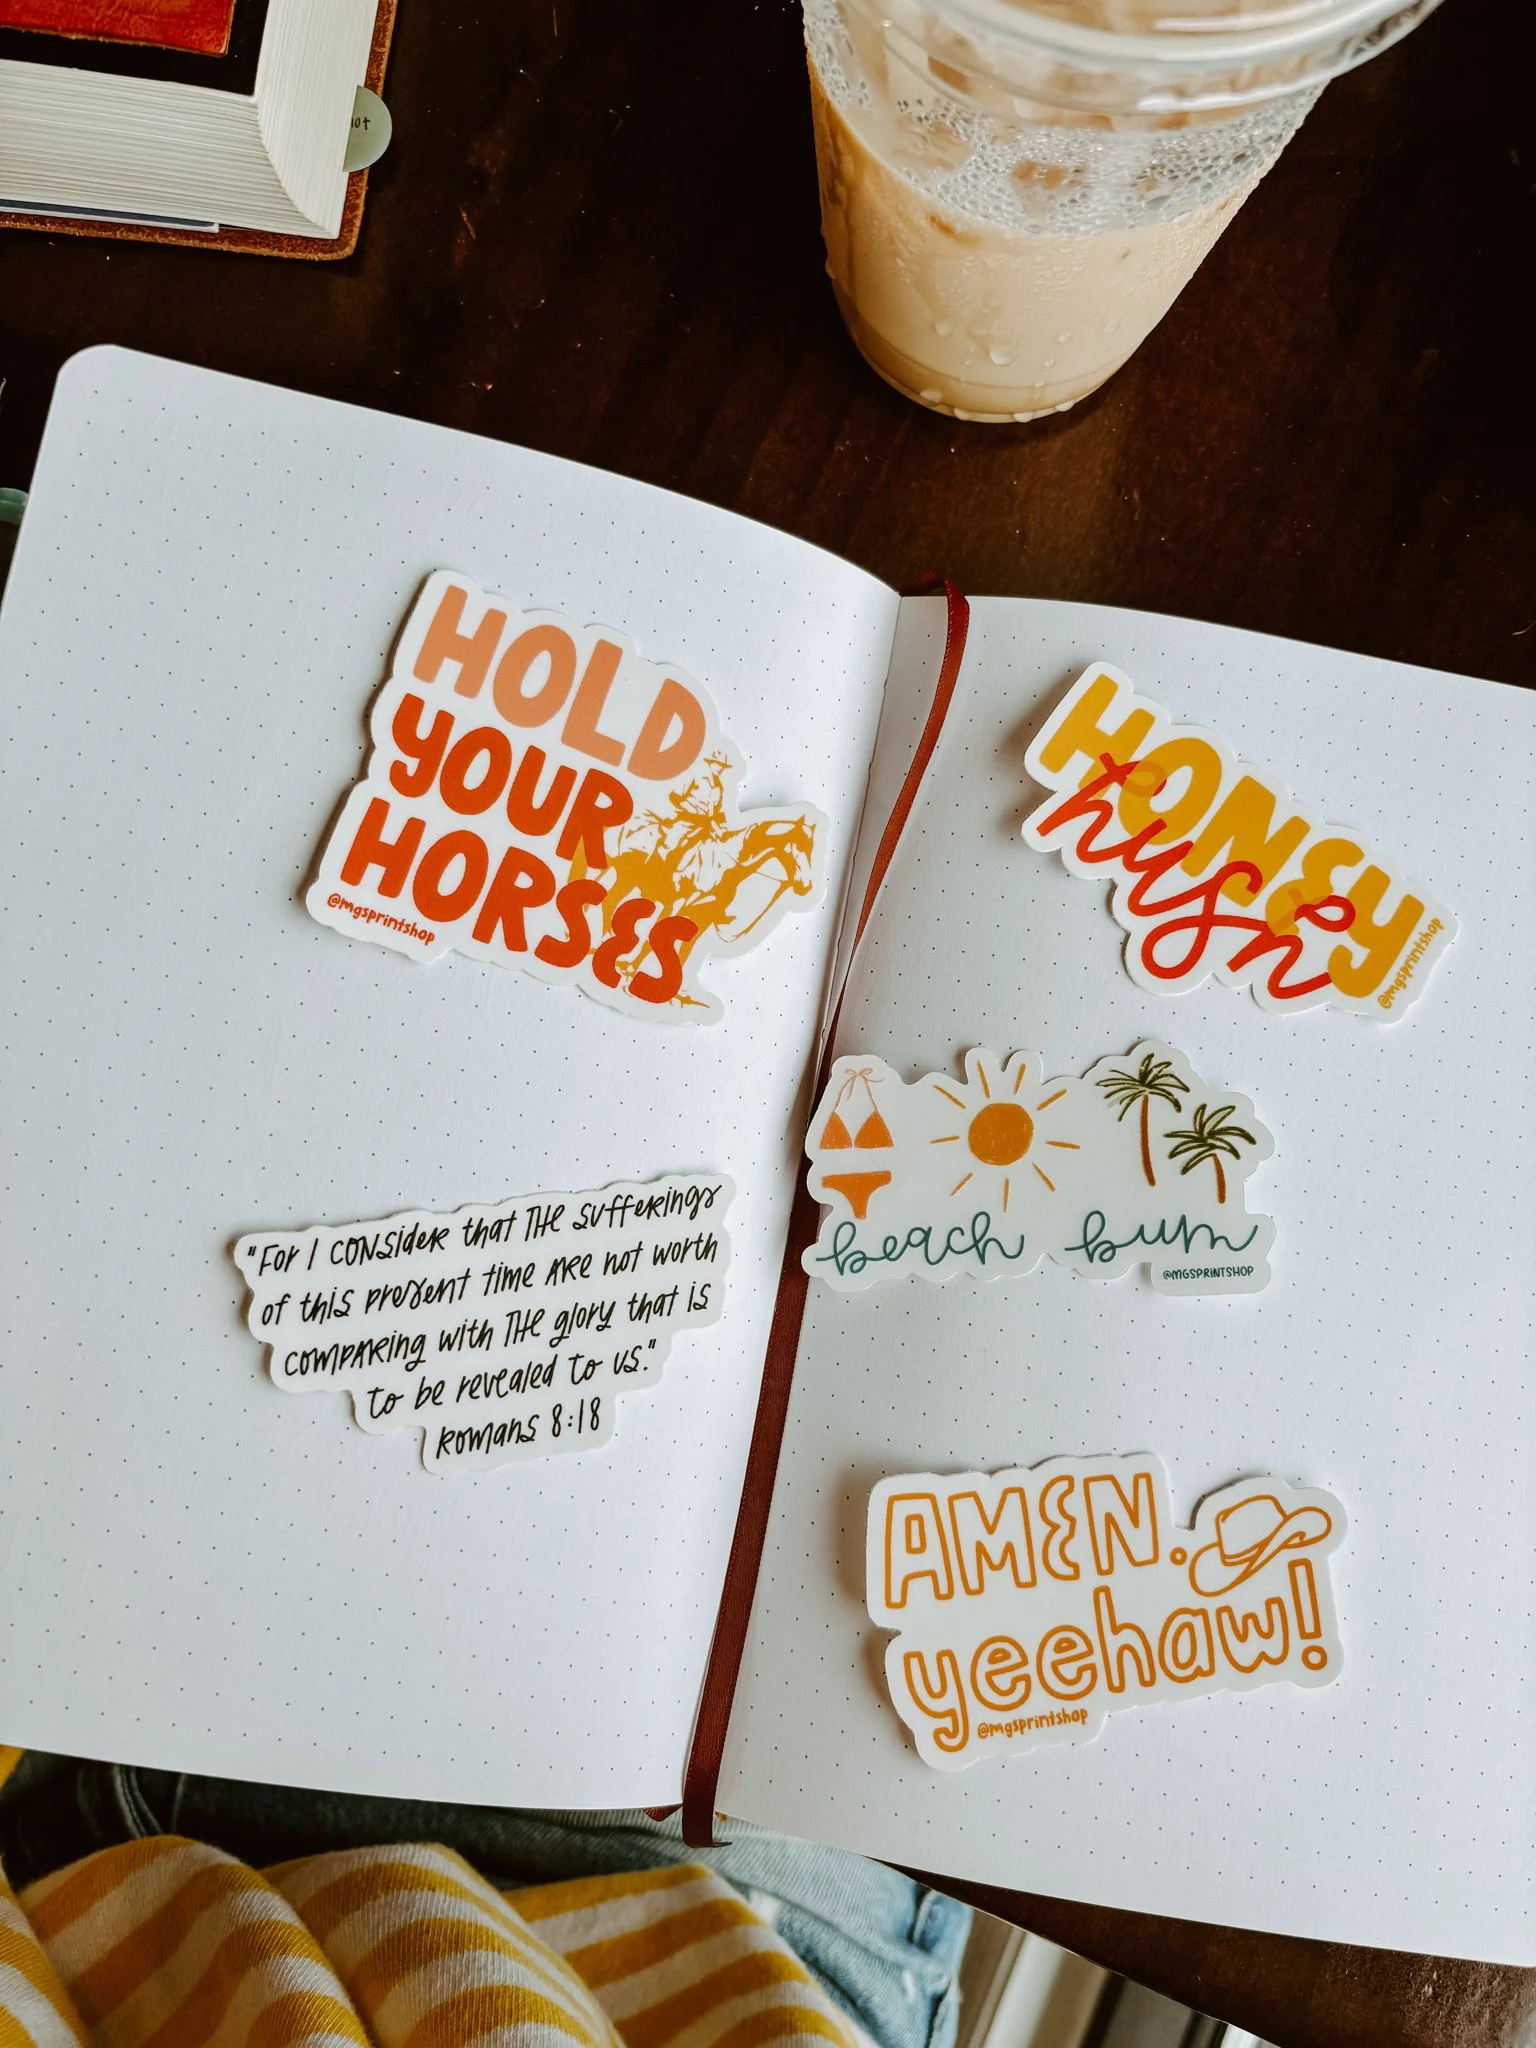 HOLD
YOUR
HORSES
@mgsprintshop
"FOR I CONSIDER that THE sufferings
of this present time ARE not worth
comparing with THE glory that is
to be revealed to us."
Romans 8:18
HONEY
hush
@mgsprintshop
beach bum
@MGSPRINTSHOP
AMEN.
yeehaw!
@mgsprintshop